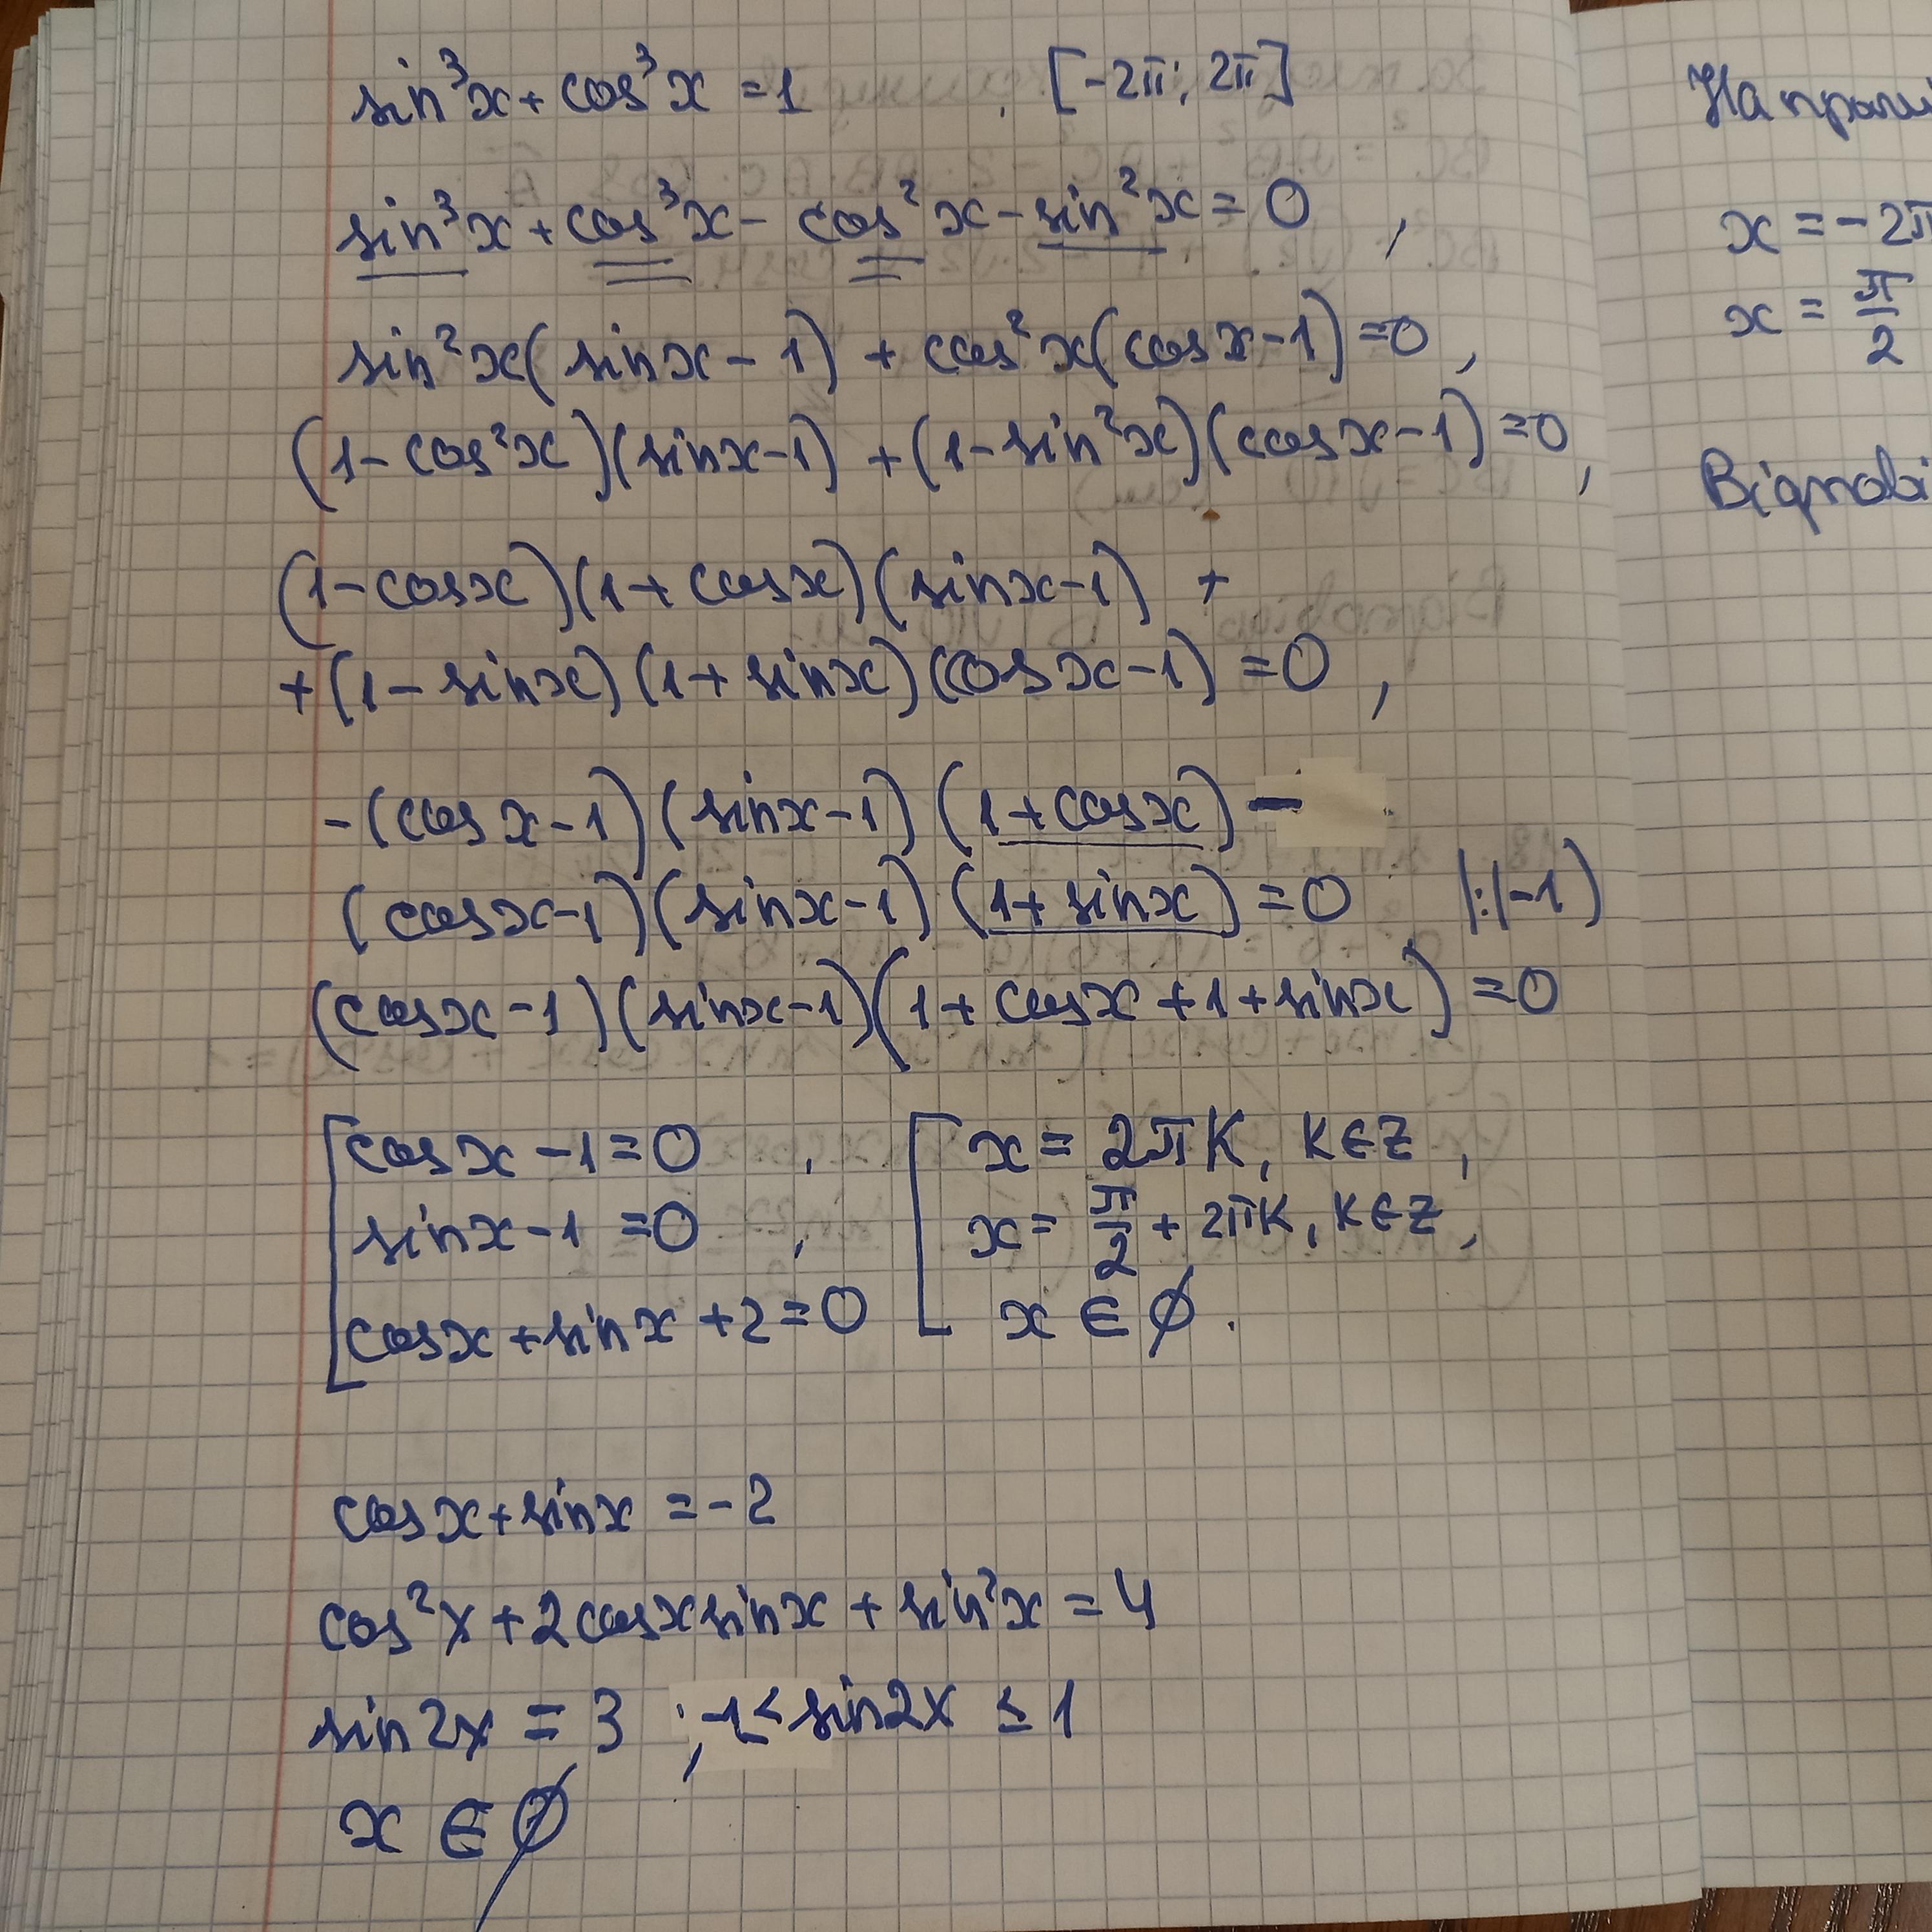 sin³x + cos³x = 1 , [-2π; 2π]
sin³x + cos³x - cos²x - sin²x = 0 ,
sin²x(sinx - 1) + cos²x(cosx - 1) = 0 ,
(1 - cos²x)(sinx - 1) + (1 - sin²x)(cosx - 1) = 0 ,
(1 - cosx)(1 + cosx)(sinx - 1) +
+ (1 - sinx)(1 + sinx)(cosx - 1) = 0 ,
- (cosx - 1)(sinx - 1)(1 + cosx) -
(cosx - 1)(sinx - 1)(1 + sinx) = 0 |:(-1)
(cosx - 1)(sinx - 1)(1 + cosx + 1 + sinx) = 0
cosx - 1 = 0 , x = 2πk, k ∈ Z ,
sinx - 1 = 0 , x = π/2 + 2πk, k ∈ Z ,
cosx + sinx + 2 = 0 x ∈ ∅ .
cosx + sinx = -2
cos²x + 2cosxsinx + sin²x = 4
sin2x = 3 ; -1 ≤ sin2x ≤ 1
x ∈ ∅
x = -2π
x = π/2